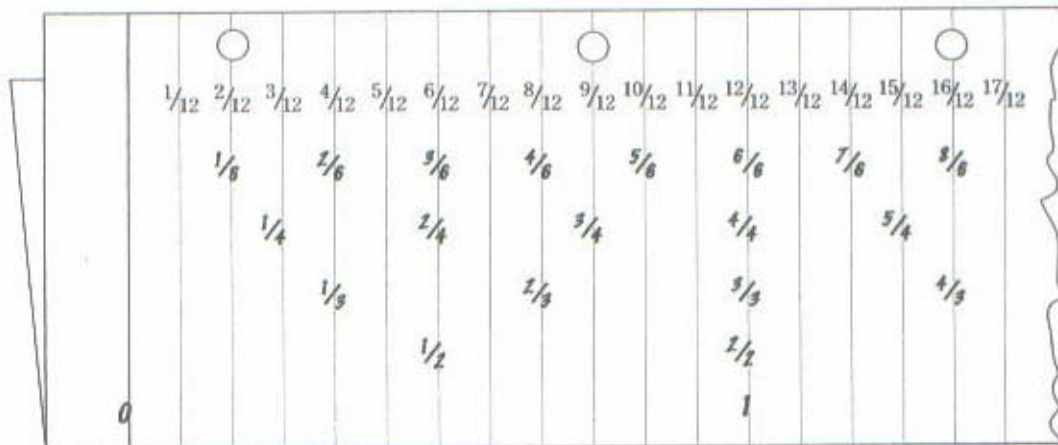 1/12 2/12 3/12 4/12 5/12 6/12 7/12 8/12 9/12 10/12 11/12 12/12 13/12 14/12 15/12 16/12 17/12
1/6 2/6 3/6 4/6 5/6 6/6 7/6 8/6
1/4 2/4 3/4 4/4 5/4
1/3 2/3 3/3 4/3
1/2 2/2
0 1